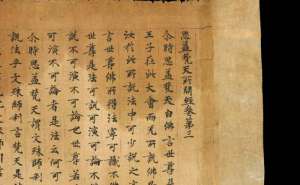 思益梵天所問經卷第三
尒時思益梵天白佛言世尊
王子在此大會而无所說佛
汝於此所說法中可少說之文
言世尊佛所得法寧可識不佛
世尊是法可說可演可論不
說不可演不可論也世尊
可演不可論者是法云何可
尒時思益梵天謂文殊師利
說法乎文殊師利言梵天